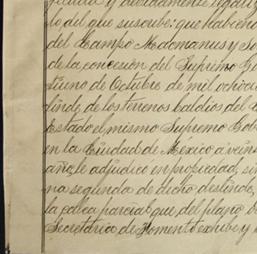 lo del que suscribe: que habiendo
del Campo Macmanus y So
de la concesion del Supremo Go
tiuno de Octubre de mil ochocie
linde, de los terrenos baldíos del E
Estado el mismo Supremo Gob
en la Ciudad de Mexico a vein
año, le adjudicó en propiedad, si
na segunda de dicho deslinde,
la parcial que, del plano
Secretario de Fomento exhibe y